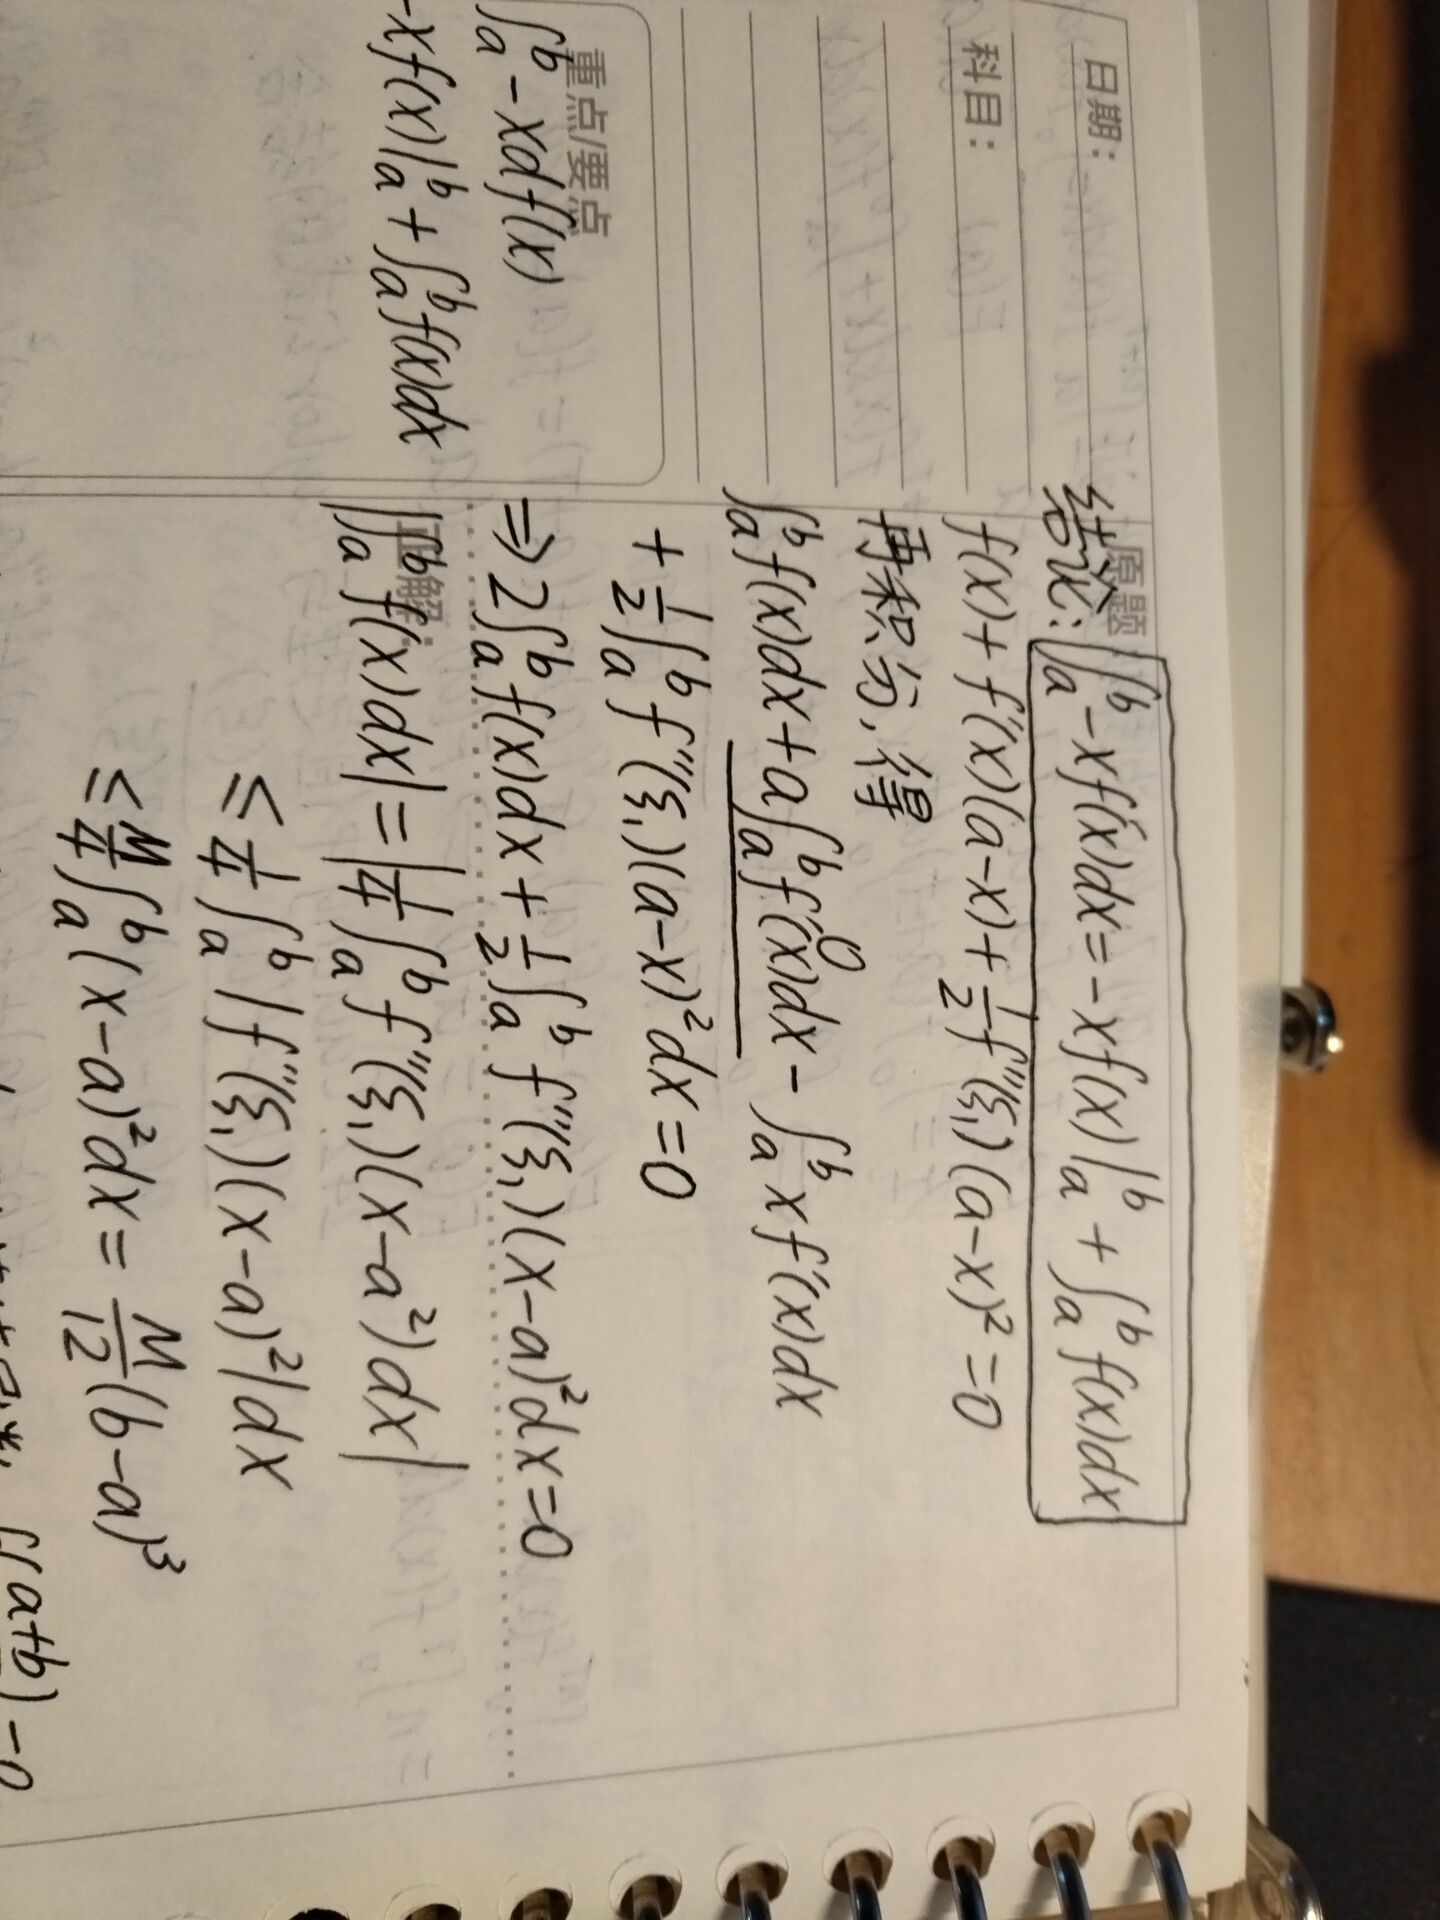 日期:
科目:
重点/要点
∫ₐᵇ -xdf(x)
-xf(x)|ₐᵇ + ∫ₐᵇ f(x)dx
原题
结论: ∫ₐᵇ -xf'(x)dx = -xf(x)|ₐᵇ + ∫ₐᵇ f(x)dx
f(x) + f'(x)(a-x) + 1/2 f''(ξ₁)(a-x)² = 0
再积分,得
∫ₐᵇ f(x)dx + a∫ₐᵇ f'(x)dx - ∫ₐᵇ xf'(x)dx
0
+ 1/2 ∫ₐᵇ f''(ξ₁)(a-x)²dx = 0
⇒ 2∫ₐᵇ f(x)dx + 1/2 ∫ₐᵇ f''(ξ₁)(x-a)²dx = 0
|∫ₐᵇ f(x)dx| = |1/4 ∫ₐᵇ f''(ξ₁)(x-a²)dx|
≤ 1/4 ∫ₐᵇ |f''(ξ₁)(x-a)²|dx
≤ M/4 ∫ₐᵇ (x-a)²dx = M/12 (b-a)³